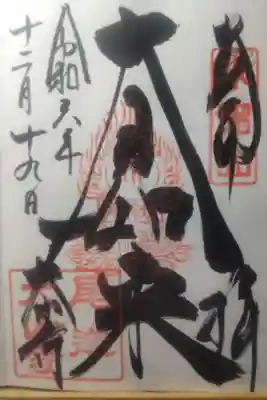 奉拝
大日如来
令和六年
十二月十九日
尾道